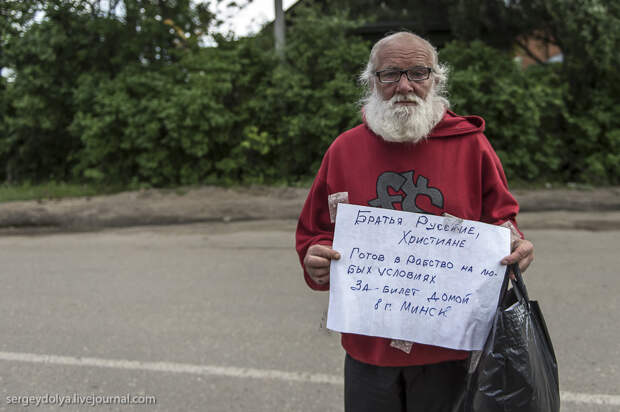 Братья Русские,
Христиане
Готов в рабство на лю-
бых условиях
За - билет домой
в г. Минск
sergeydolya.livejournal.com